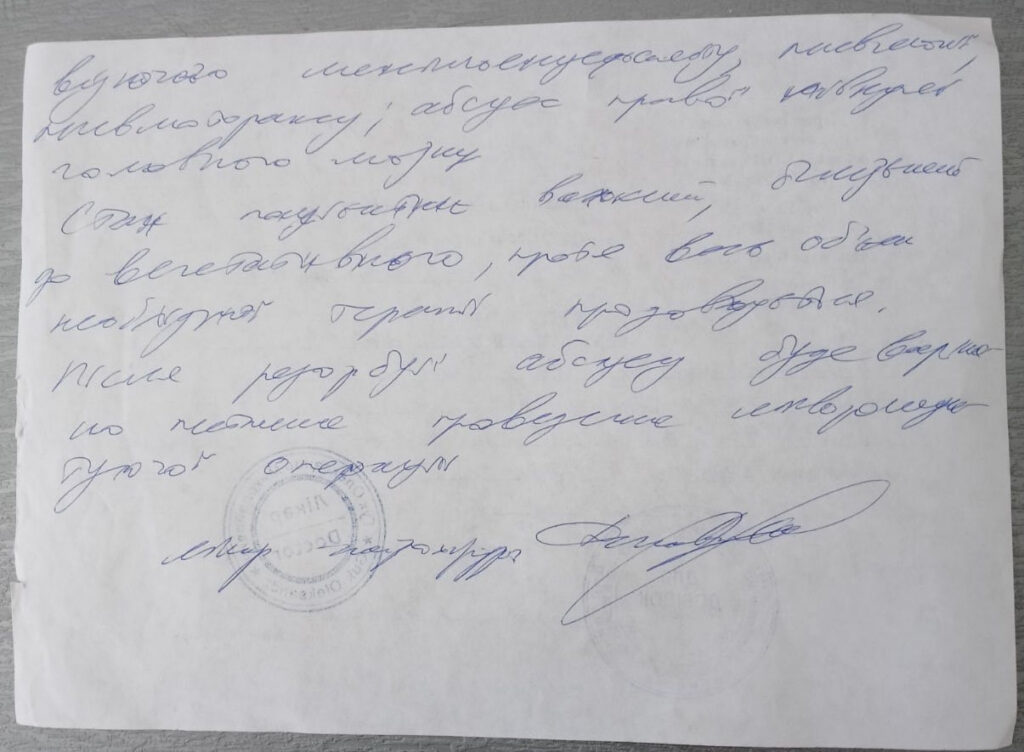 гнійного менінгоенцефаліту,
пневмотораксу; абсцес правої півкулі
головного мозку
Стан пацієнтки важкий, близький
до вегетативного, проте весь об'єм
необхідної терапії продовжується.
Після резорбції абсцесу буде вирішено
питання проведення лікворошунтуючої
операції
лікар нейрохірург
Лікар
Doctor